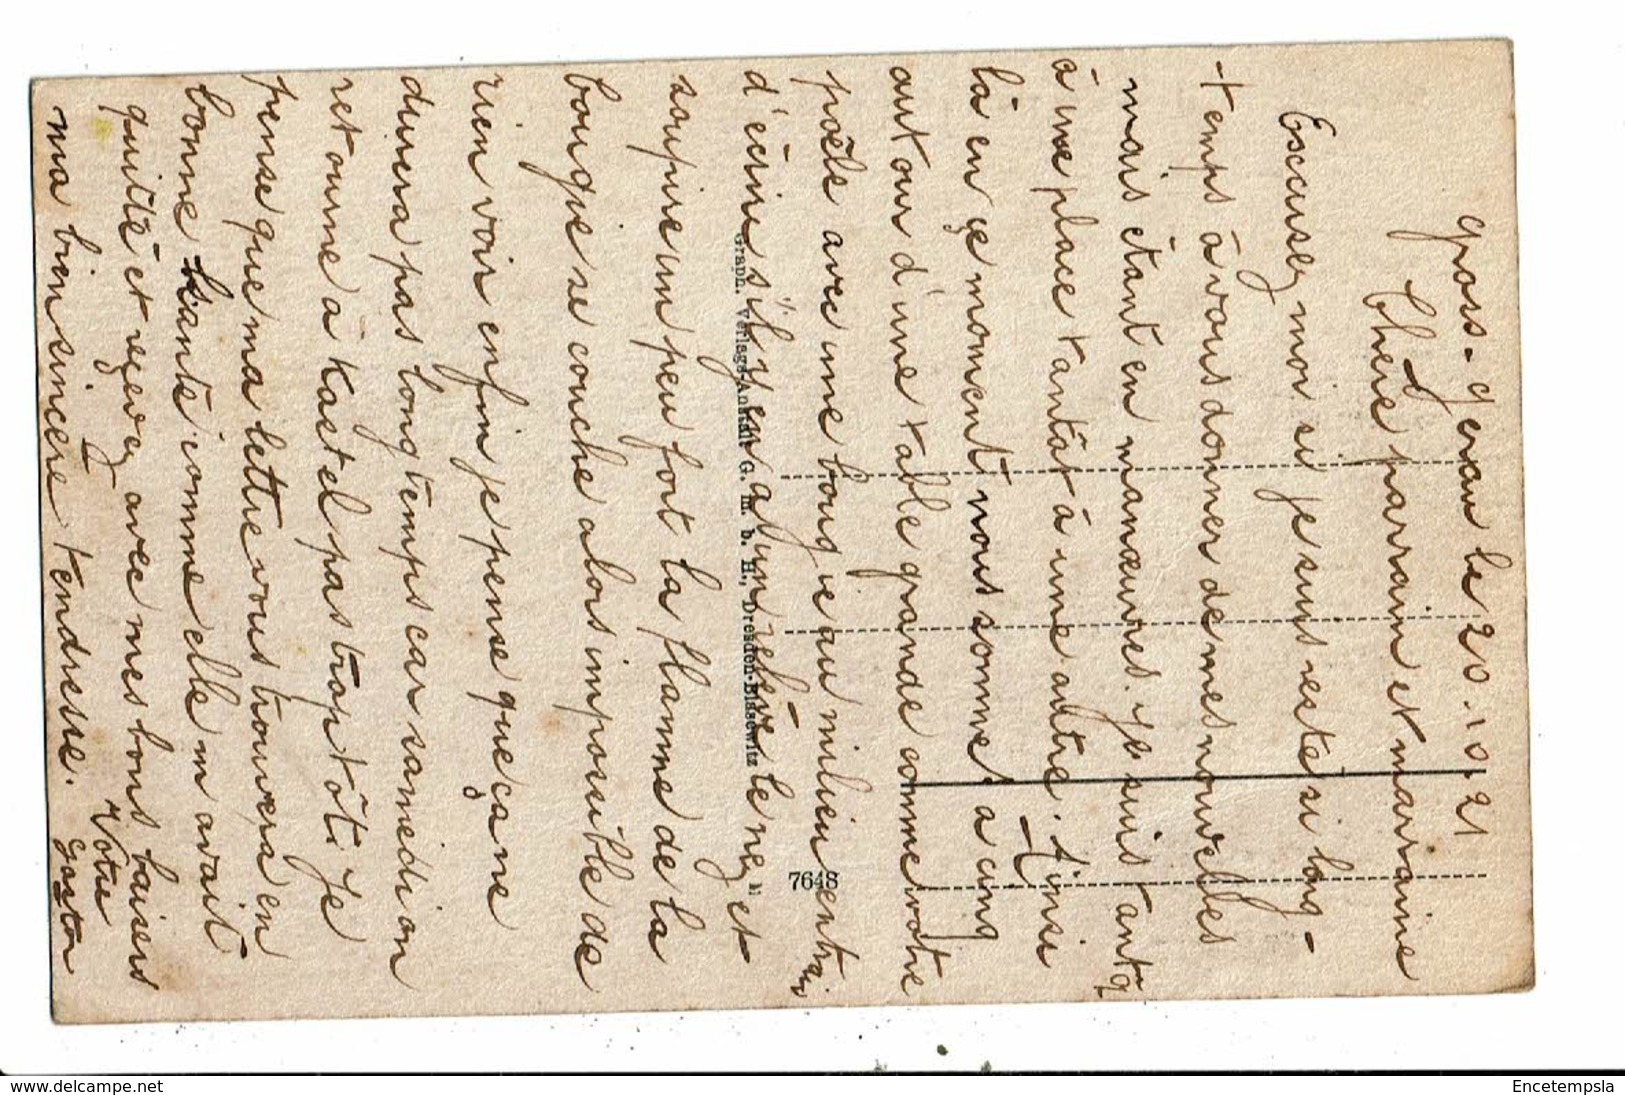 Gross-Gerau le 20.10.21
Chere parrain et marraine
Escusez moi si je suis reste si long-
temps à vous donner de mes nouvelles
mais étant en manœuvres. Je suis tantot
à une place tantôt à une autre. Ainsi
là en çe moment nous sommes a cinq
autour d'une table grande comme votre
poêle avec une bougie au milieu entrain
d'écrire s'il y en a un le nez et
soupire un peu fort la flamme de la
bougie se couche alors impossible de
rien voir enfin je pense que ça ne
durera pas longtemps car samedi on
retourne à Kastel pas trop tôt. Je
pense que ma lettre vous trouvera en
bonne santé comme elle m'avait
quitté et reçevez avec mes bons baisers
ma bien sincère tendresse.
Votre
gaston
Graph. Verlags-Anstalt G. m. b. H., Dresden-Blasewitz
7648
www.delcampe.net
Encetempsla